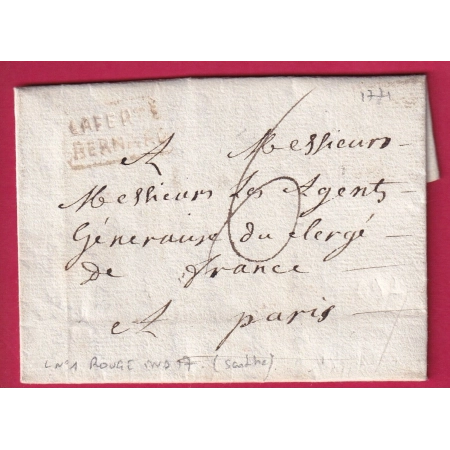 1771
LAFERTE
BERNARD
A Messieurs
Messieurs les Agents
Généraux du clergé
de france
A paris
6
LN°1 ROUGE IND 17 (Sarthe)